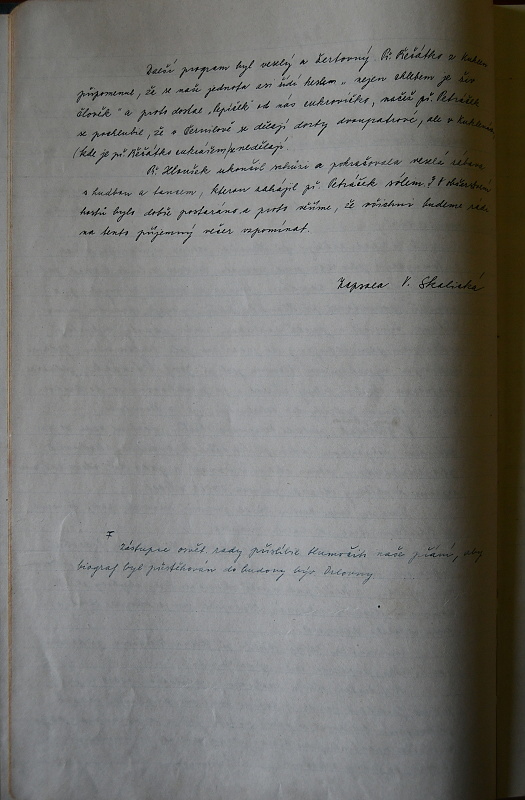 Další program byl veselý a žertovný. Př. Řešátko z Kuklen
připomenul, že se naše jednota asi řídí heslem „nejen chlebem je živ
člověk" a proto dostal „lepíček" od nás cukrovíčko, načež př. Petráček
se pochlubil, že v Černilově se dělají dorty dvoupatrové, ale v Kuklenách
(kde je př. Řešátko cukrářem) je nedělají.
Př. Hloušek ukončil schůzi a pokračovala veselá zábava
s hudbou a tancem, kterou zahájil př. Petráček sólem. O občerstvení
hostů bylo dobře postaráno a proto věříme, že všichni budeme rádi
na tento příjemný večer vzpomínat.
Zapsala V. Skalická
Zástupce osvět. rady přislíbil tlumočiti naše přání, aby
biograf byl přestěhován do budovy býv. Orlovny.